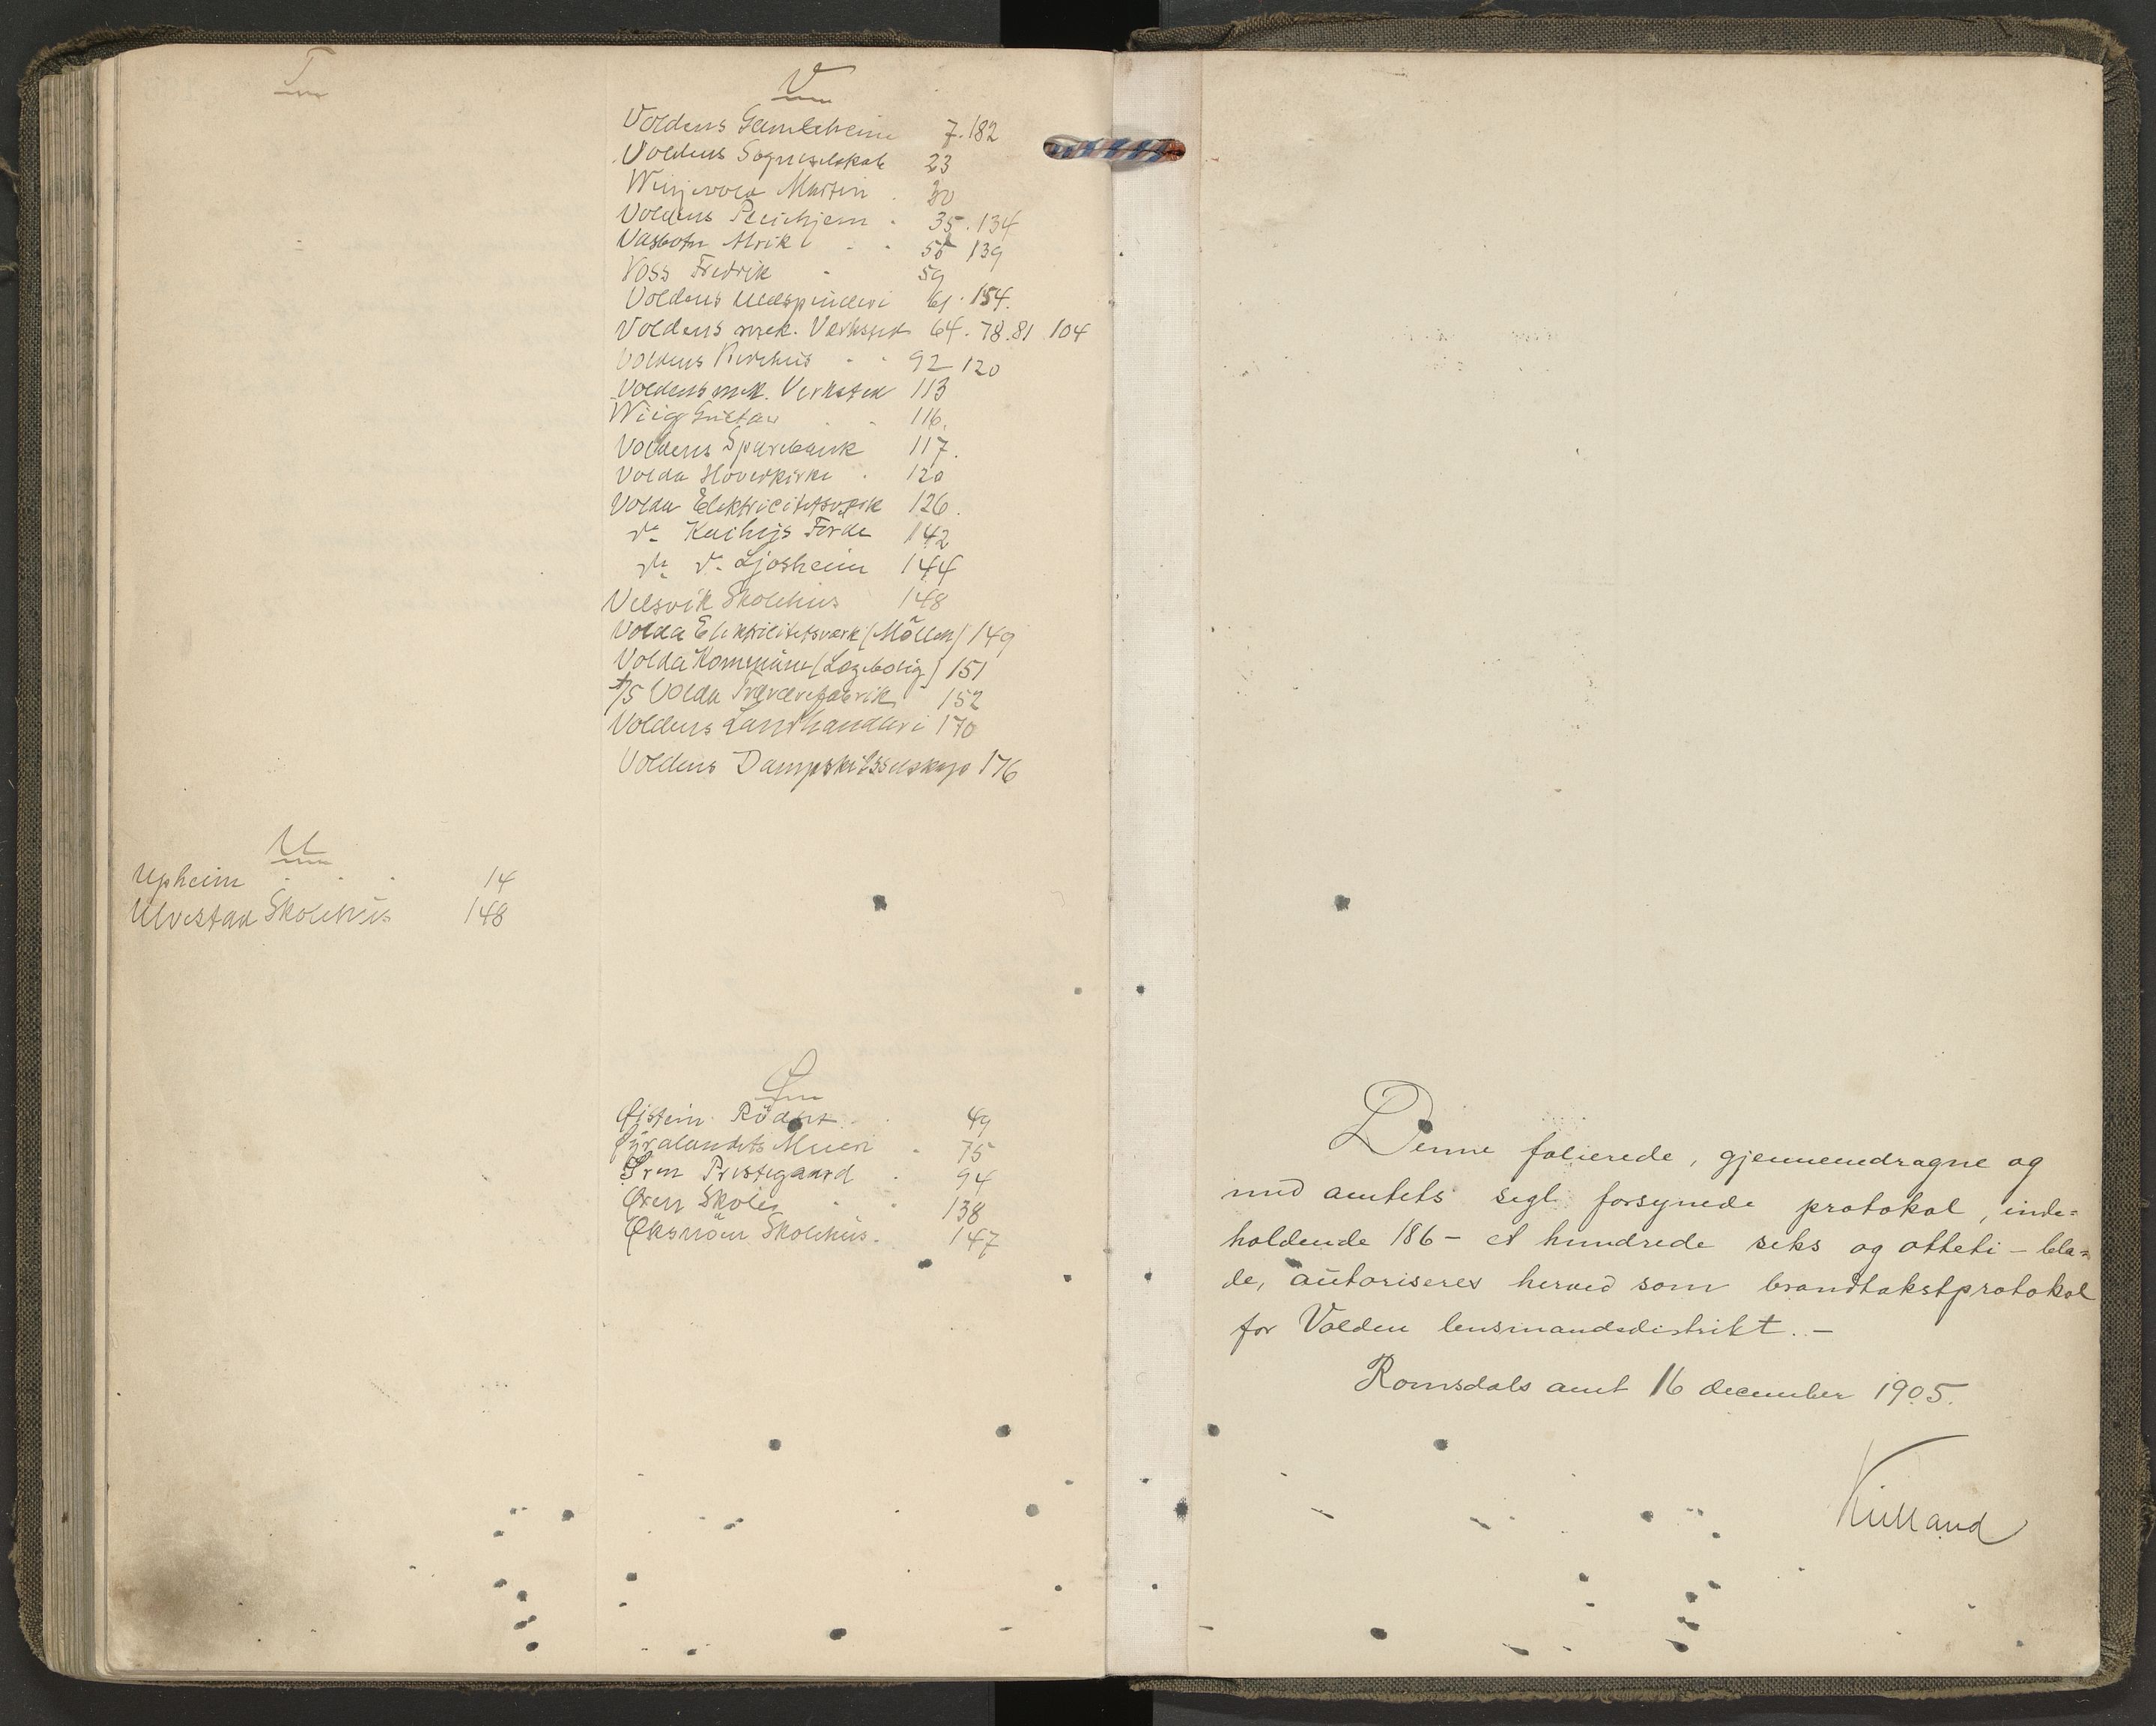 T
U
Upheim . . . 14
Ulvestad Skolehus 148
V
Voldens Gamleheim 7. 182
Voldens Sogneselskab 23
Martin . 30
Voldens Pleiehjem . 35. 134
Vasbotn Alrik . . 55 139
Voss Fredrik . 59
Voldens Uldspinderi 61. 154.
Voldens mek. Verksted 64. 78. 81 104
Voldens . . 92 120
Voldens mek. Verksted 113
Wiig Gustav . . 116.
Voldens Sparebank 117.
Volda Hovedkirke . 120
Volda Elektricitetsverk 126.
do Førde 142
do do Ljosheim 144
Velsvik Skolehus 148
Volda Elektricitetsverk (Möllen) 149
Volda Kommune (Lægebolig) 151
A/S Volda Trævarefabrik 152
Voldens Landhandleri 170
Voldens Dampskibsselskap 176
Ø
Øistein Rödset . 49
Øyralandets Meieri . 75
Ørsten Prestegaard . 94
Ørsten Skole . . 138
Øksnöen Skolehus. 147
Denne folierede, gjennemdragne og
med amtets segl forsynede protokol, inde=
holdende 186 - et hundrede seks og otteti - bla=
de, autoriseres herved som brandtakstprotokol
for Volden lensmandsdistrikt. -
Romsdals amt 16 december 1905.
Kielland